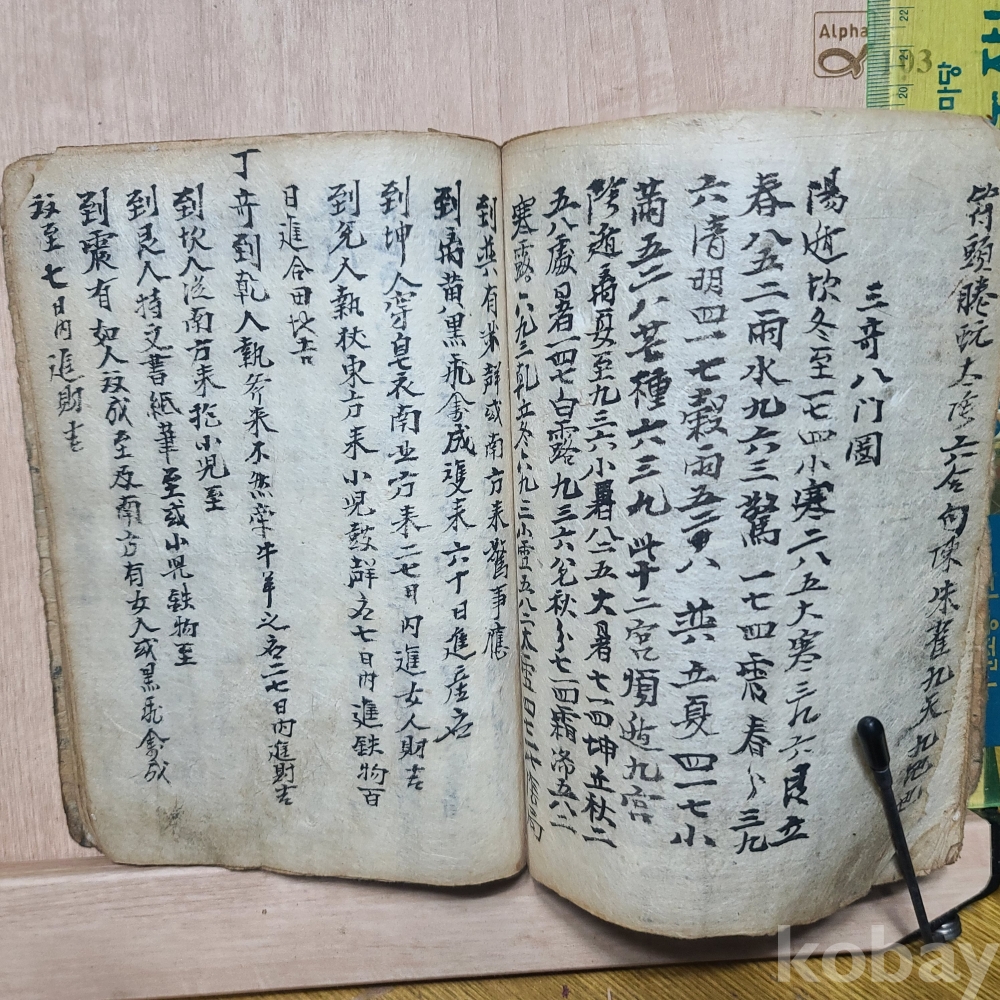 符頭騰蛇太陰六合句陳朱雀九天九地
三奇八门圖
陽遁坎冬至一七四小寒二八五大寒三九六艮立
春八五二雨水九六三驚一七四震春分三九
六淸明四一七穀雨五二八巽立夏四一七小
滿五二八芒種六三九此十二宮順遁九宮
陰遁离夏至九三六小暑八二五大暑七一四坤立秋二
五八處暑一四七白露九三六兌秋分七一四霜降五八二
寒露六九三乾立冬六九三小雪五八二大雪四七一
到巽有来群或南方来驚事應
到离黄黑飛禽成雙来六十日進産名
到坤人穿皂衣南北方来二七日內進女人財吉
到兌人執杖東方来小児鼓群六七日內進鉄物百
日進合田地吉
丁奇到乾人執斧来不然牽牛羊之名二七日內進財吉
到坎人從南方来抱小児至
到艮人持文書紙筆至或小児鉄物至
到震有如人致成至及南方有女人或黑飛禽成
致至七日內進財吉
Alpha
03
22
21
20
마당
kobay